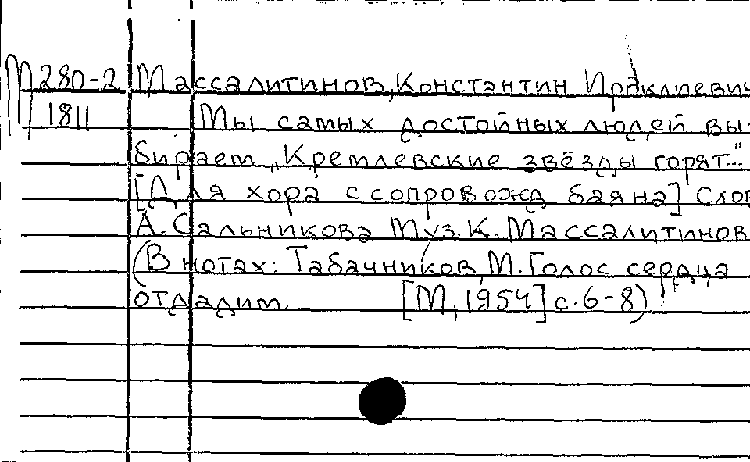 М 280-2 Массалитинов, Константин Ираклиевич
1811 Мы самых достойных людей вы-
бираем „Кремлевские звёзды горят..."
[Для хора с сопровожд баяна] Слов
А. Сальникова Муз. К. Массалитинов
(В нотах: Табачников, М. Голос сердца
отдадим [М, 1954] с. 6-8)